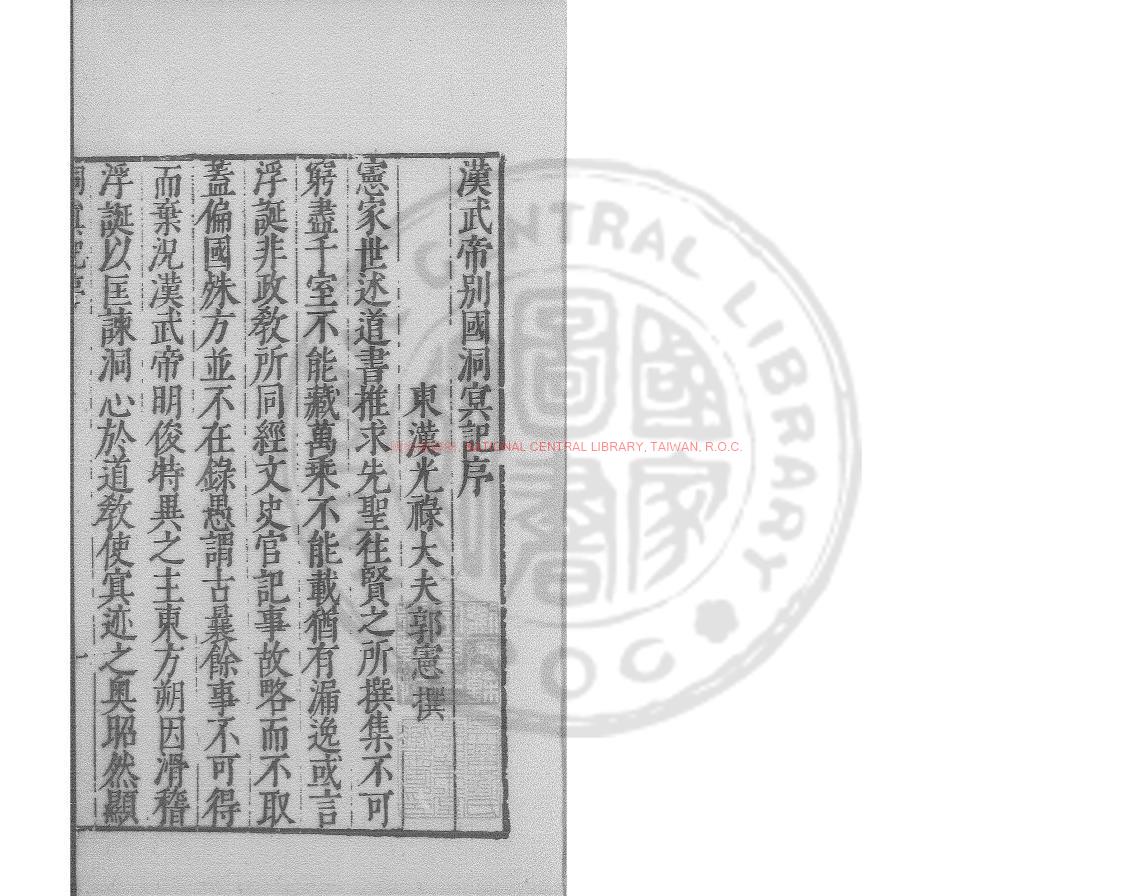 漢武帝別國洞冥記序
東漢光祿大夫郭憲撰
憲家世述道書推求先聖往賢之所撰集不可
窮盡千室不能藏萬乘不能載猶有漏逸或言
浮誕非政教所同經文史官記事故略而不取
蓋偏國殊方並不在錄愚謂古曩餘事不可得
而棄況漢武帝明俊特異之主東方朔因滑稽
浮誕以匡諫洞心於道教使冥迹之奧昭然顯
洞冥記序
一
NATIONAL CENTRAL LIBRARY, TAIWAN, R.O.C.
CENTRAL LIBRARY